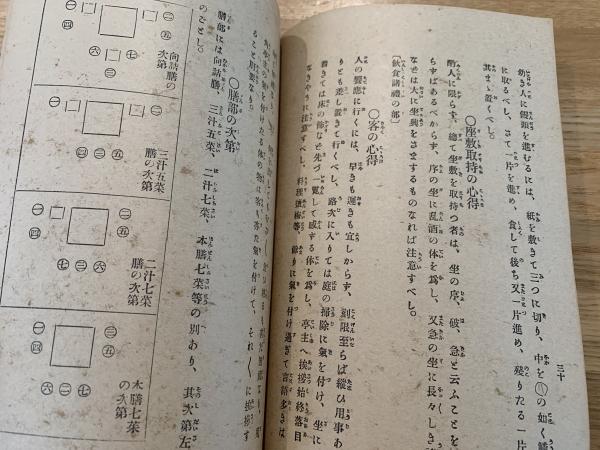 三十
幼き人に饅頭を進むるには、紙を敷きて三つに切り、中を
に取るべし、さて一片を進め、食して後ち又一片進め、殘りたる一片
其まゝ置くべし。
〇座敷取持の心得
酌人に限らず、總て坐敷を取持つ者は、坐の序、破、急と云ふことを
らずばあるべからず、序の坐に乱酒の体を爲し、又急の坐に長々しき
なせば大に坐興をさますものなれば注意すべし。
〔飲食諸禮の部〕
〇客の心得
人の饗應に行くには、早きも遲きも宜しからず、刻限至らば縱ひ用事あ
りとも差し置きて行くべし、路次に入りては庭の掃除に氣を付け、坐に
着きては床の飾など先づ一覽して感ずる体を爲し、亭主へ挨拶始終落目
なきやうに注意すべし、料理塩梅等、餘りに氣を付け過ぎて言語多きは
ること肝要なり。
〇膳部の次第
膳部には向詰膳、三汁五菜、二汁七菜、本膳七菜等の別あり、其次第左
のごとし。
向詰膳の次第
三汁五菜膳の次第
二汁七菜膳の次第
本膳七菜の次第